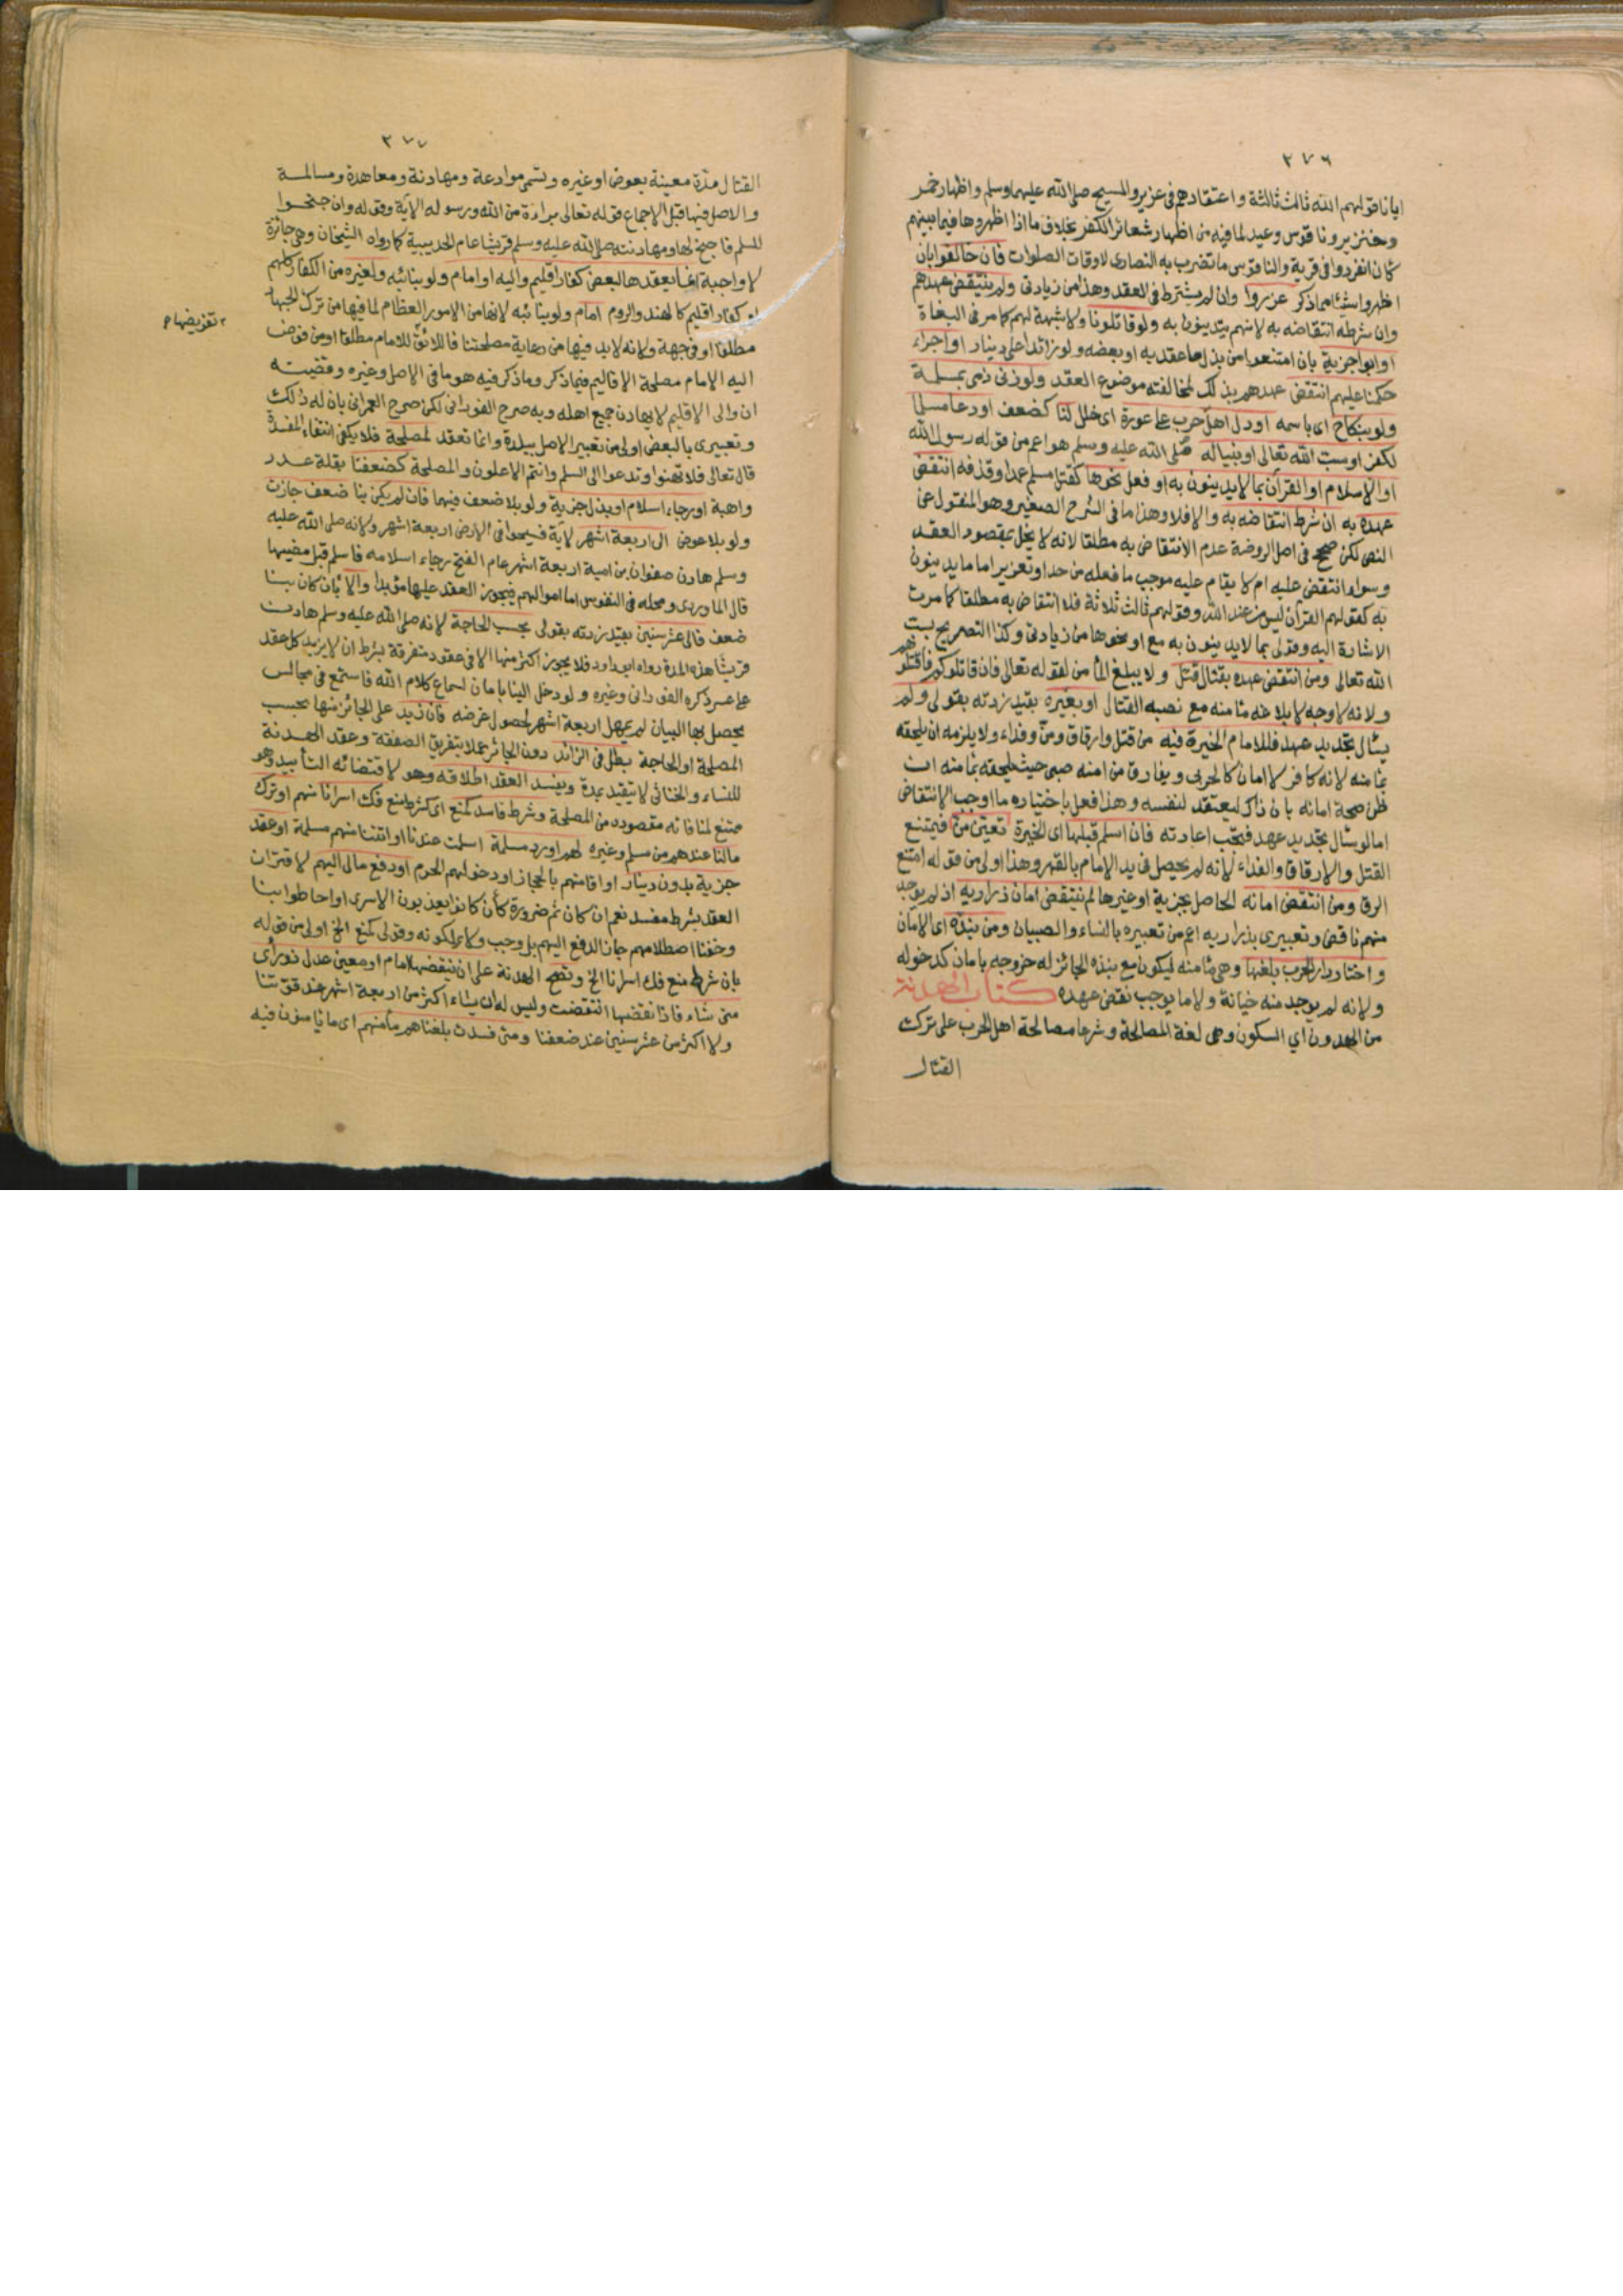 ٢٧٦
ايانا قولهم الله ثالث ثلاثة واعتقادهم فى عزير والمسيح صلى الله عليهما وسلم واظهار خمر
وخنزير وناقوس وعيد لما فيه من اظهار شعائر الكفر بخلاف ما اذا اظهروها فيما بينهم
كان انفردوا فى قرية والناقوس ما تضرب به النصارى لاوقات الصلوات فان خالفوا بان
اظهروا شيئا مما ذكر عزروا وان لم يشترط فى العقد وهذا من زيادتى ولم ينتقض عهدهم
وان شرط انتقاضه به لانهم يتدينون به ولو قاتلونا ولا شبهة لهم كما مر فى البغاة
او ابوا جزية بان امتنعوا من بذل ما عقد به او بعضه ولو زائدا على دينار او اجراء
حكمنا عليهم انتقض عهدهم بذلك لمخالفته موضوع العقد ولو زنى ذمى بمسلمة
ولو بنكاح اى باسمه او دل اهل حرب على عورة اى خلل لنا كضعف او دعا مسلما
لكفر او سب الله تعالى او نبيا له صلى الله عليه وسلم هو اعم من قوله رسول الله
او الاسلام او القرآن بما لا يدينون به او فعل نحوها كقتل مسلم عمدا وقذفه انتقض
عهده به ان شرط انتقاضه به والا فلا وهذا ما فى الشرح الصغير وهو المنقول عن
النص لكن صحح فى اصل الروضة عدم الانتقاض به مطلقا لانه لا يخل بمقصود العقد
وسواء انتقض عليه ام لا يقام عليه موجب ما فعله من حد او تعزير اما ما يدينون
به كقولهم القرآن ليس من عند الله وقولهم ثالث ثلاثة فلا انتقاض به مطلقا كما مرت
الاشارة اليه وقولى بما لا يدينون به مع او نحوها من زيادتى وكذا التصريح بسب
الله تعالى ومن انتقض عهده بقتال قتل ولا يبلغ المأمن لقوله تعالى فان قاتلوكم فاقتلوهم
ولانه لا وجه لابلاغه مأمنه مع نصبه القتال او بغيره بقيد زدته بقولى ولم
يسأل تجديد عهد فللامام الخيرة فيه من قتل وارقاق ومن وفداء ولا يلزمه ان يلحقه
بمأمنه لانه كافر لا امان له كالحربى ويفارق من امنه صبى حيث نلحقه بمأمنه ان
ظن صحة امانه بان ذاك يعتقد لنفسه وهذا فعل باختياره ما اوجب الانتقاض
اما لو سأل تجديد عهد فتجب اعادته فان اسلم قبلها اى الخيرة تعين من فيمتنع
القتل والارقاق والفداء لانه لم يحصل فى يد الامام بالقهر وهذا اولى من قوله امتنع
الرق ومن انتقض امانه الحاصل بجزية او غيرها لم ينتقض امان ذراريه اذ لم يوجد
منهم ناقض وتعبيرى بذراريه اعم من تعبيره بالنساء والصبيان ومن نبذه اى الامان
واختار دار الحرب بلغها وهى مأمنه ليكون مع نبذه الجائز له خروجه بامان كدخوله
ولانه لم يوجد منه خيانة ولا ما يوجب نقض عهده كتاب الهدنة
من الهدون اي السكون وهى لغة المصالحة وشرعا مصالحة اهل الحرب على ترك
القتال
٢٧٧
القتال مدة معينة بعوض او غيره وتسمى موادعة ومهادنة ومعاهدة ومسالمة
والاصل فيها قبل الاجماع قوله تعالى براءة من الله ورسوله الآية وقوله وان جنحوا
للسلم فاجنح لها ومهادنته صلى الله عليه وسلم قريشا عام الحديبية كما رواه الشيخان وهى جائزة
لا واجبة انما يعقدها لبعض كفار اقليم واليه او امام ولو بنائبه ولغيره من الكفار كلهم
او كفار اقليم كالهند والروم امام ولو بنائبه لانها من الامور العظام لما فيها من ترك الجهاد
مطلقا او فى جهة ولانه لا بد فيها من رعاية مصلحتنا فاللائق للامام مطلقا او من فوض
تفويضها
اليه الامام مصلحة الاقاليم فيما ذكر وما ذكر فيه هو ما فى الاصل وغيره وقضيته
ان والى الاقليم لا يهادن جميع اهله وبه صرح الفورانى لكن صرح العمرانى بان له ذلك
وتعبيرى بالبعض اولى من تعبير الاصل ببلدة وانما تعقد لمصلحة فلا يكفى انتفاء المفسدة
قال تعالى فلا تهنوا وتدعوا الى السلم وانتم الاعلون والمصلحة كضعفنا بقلة عدد
واهبة او رجاء اسلام او بذل جزية ولو بلا ضعف فيهما فان لم يكن بنا ضعف جازت
ولو بلا عوض الى اربعة اشهر لآية فسيحوا فى الارض اربعة اشهر ولانه صلى الله عليه
وسلم هادن صفوان بن امية اربعة اشهر عام الفتح رجاء اسلامه فاسلم قبل مضيها
قال الماوردى ومحله فى النفوس اما اموالهم فيجوز العقد عليها مؤبدا والا بان كان بنا
ضعف فالى عشر سنين بقيد زدته بقولى بحسب الحاجة لانه صلى الله عليه وسلم هادن
قريشا هذه المدة رواه ابو داود فلا يجوز اكثر منها الا فى عقود متفرقة بشرط ان لا يزيد كل عقد
على عشر ذكره الفورانى وغيره ولو دخل الينا بامان لسماع كلام الله فاستمع فى مجالس
يحصل بها البيان لم يمهل اربعة اشهر لحصول غرضه فان زيد على الجائز منها بحسب
المصلحة او الحاجة بطل فى الزائد دون الجائز عملا بتفريق الصفقة وعقد الهدنة
للنساء والخناثى لا يتقيد بمدة ويفسد العقد اطلاقه وهو لاقتضائه التأبيد وهو
ممتنع لمنافاته مقصوده من المصلحة وشرط فاسد كمنع اى كشرط منع فك اسرانا منهم او ترك
مالنا عندهم من مسلم وغيره لهم او رد مسلمة اسلمت عندنا او اتتنا منهم مسلمة او عقد
جزية بدون دينار او اقامتهم بالحجاز او دخولهم الحرم او دفع مال اليهم لاقتران
العقد بشرط مفسد نعم ان كان ثم ضرورة كأن كانوا يعذبون الاسرى او احاطوا بنا
وخفنا اصطلامهم جاز الدفع اليهم بل وجب ولا يملكونه وقولى كمنع الخ اولى من قوله
بان شرط منع فك اسرانا الخ وتصح الهدنة على ان ينقضها امام او معين عدل ذو رأى
متى شاء فاذا نقضها انتقضت وليس له ان يشاء اكثر من اربعة اشهر عند قوتنا
ولا اكثر من عشر سنين عند ضعفنا ومتى فسدت بلغناهم مأمنهم اى ما يأمنون فيه